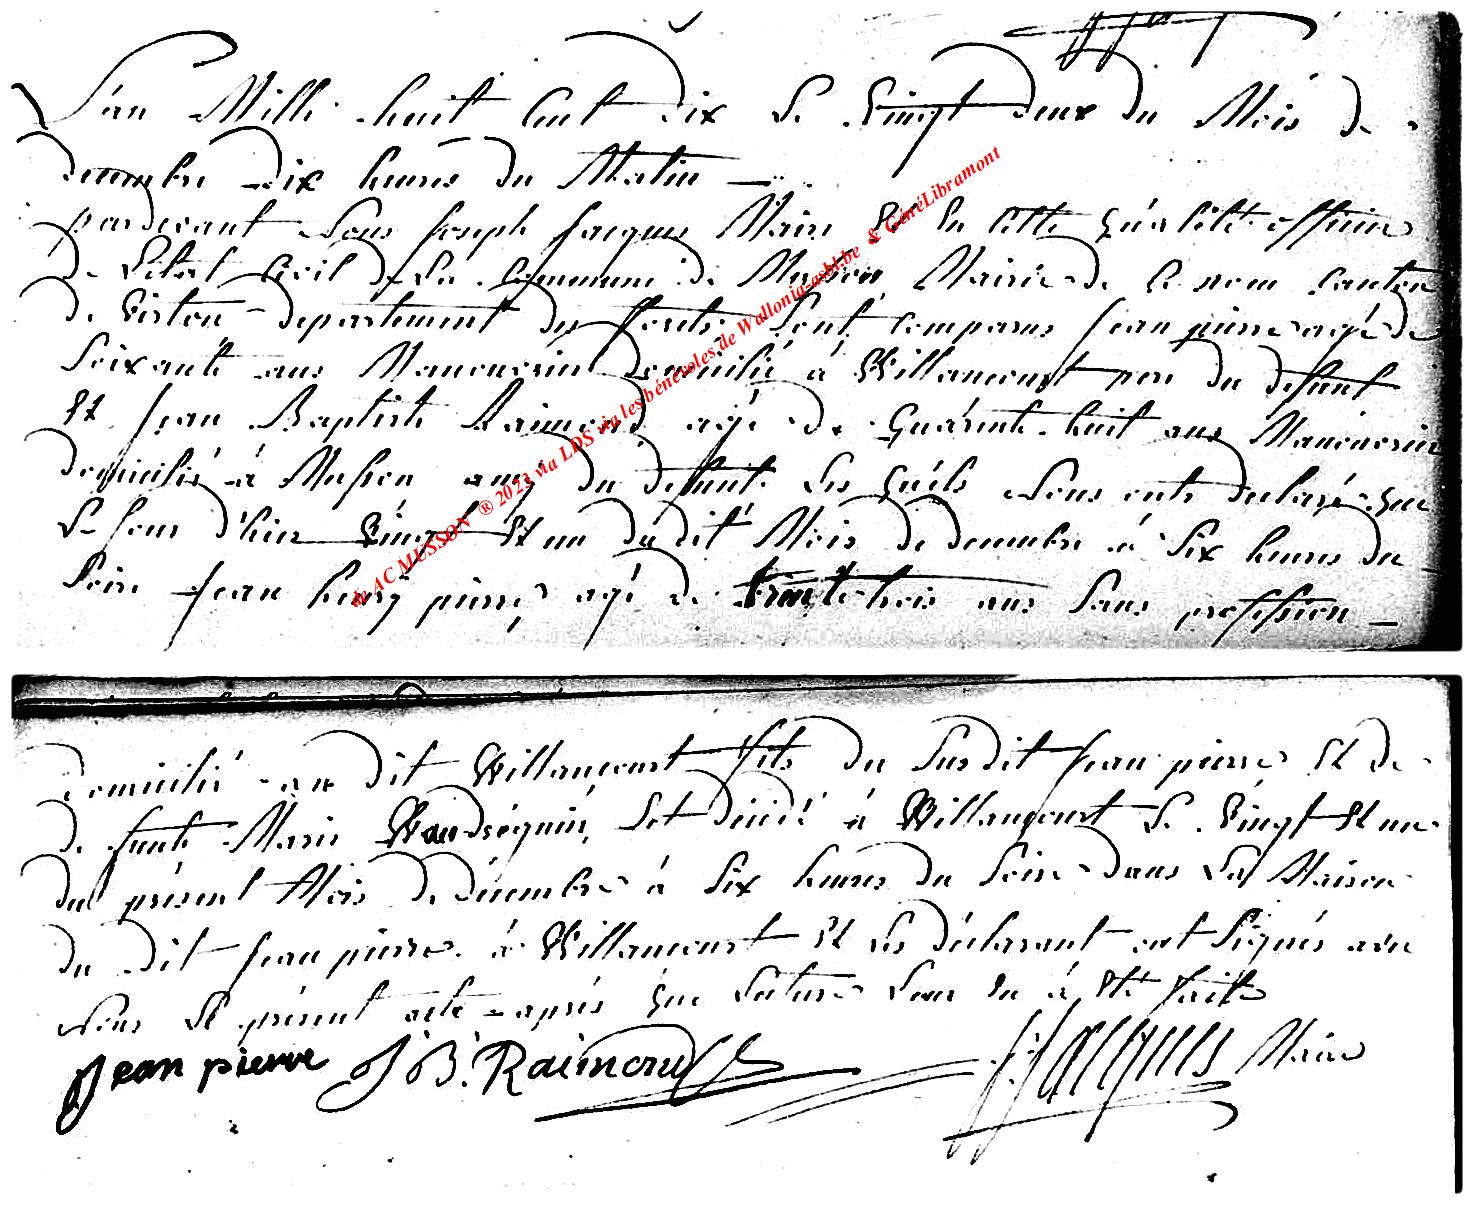 L'an Mille huit Cent dix Le Vingt deux du Mois de
decembre dix heures du Matin
pardevant Nous Joseph Jacques Maire Et En Cette Quálité officier
de L'état Civil de La Commune de Musson Mairie de Ce nom Canton
de Virton departement des forêts. Sont comparus Jean pierre agé de
Soixante ans Manouvrier domicilié á Willancourt pere du defunt
Et Jean Baptiste Raimond agé de Quárante huit ans Manouvrier
domicilié á Musson amy du defunt Les Quéls Nous onts declaré Que
Le Jour d'hier Vingt Et un du dit Mois de decembre á Six heures du
Soire Jean henry pierre agé de trente trois ans Sans profession
domicilié au dit Willancourt fils du Susdit Jean pierre Et de
defunte Marie Waudréquin, Est décédé á Willancourt Le Vingt Et un
du présent Mois de décembre á Six heures du Soire dans La Maison
du dit Jean pierre á Willancourt Et Les déclarant ont Signés avec
Nous Le présent acte aprés Que Lecture Leur En á Eté faite
Jean pierre J. B. Raimond J. Jacques Maire
© AC MUSSON ® 2023 via LDS via les bénévoles de Wallonia-asbl.be & GénéLibramont